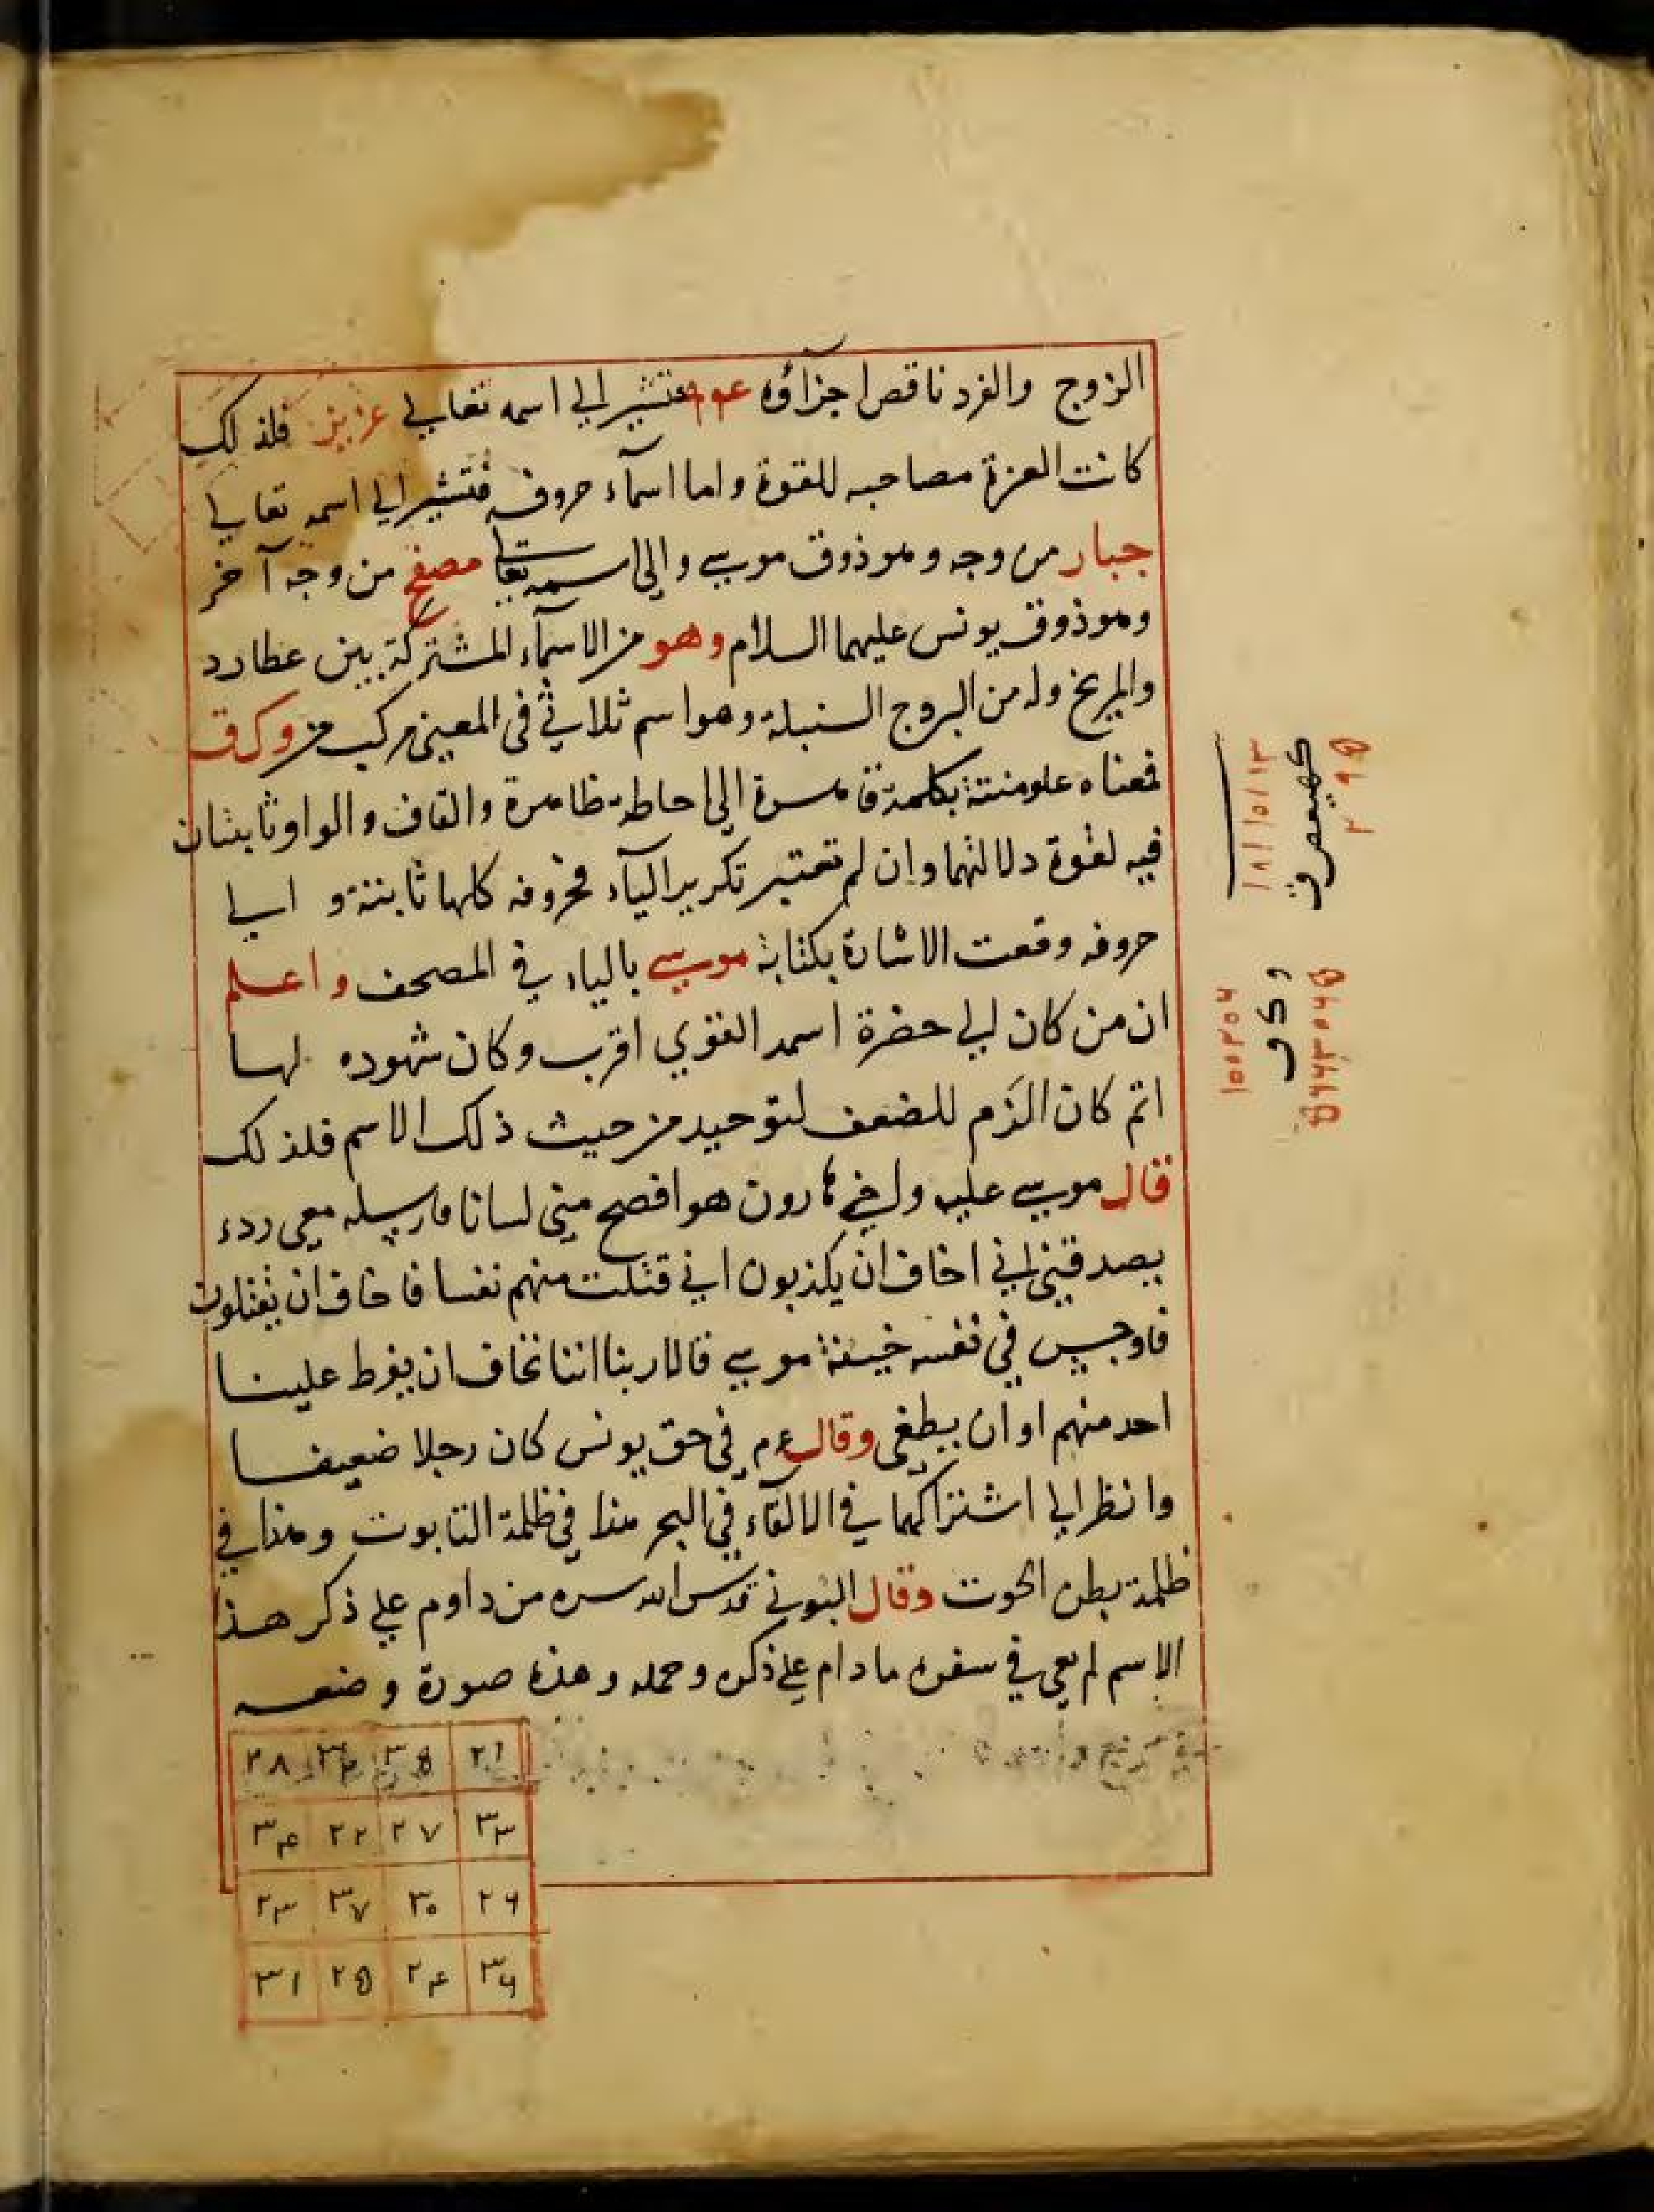 الزوج والفرد ناقص اجزآؤه فتشير الي اسمه تعالي عزيز فلذلك
كانت العزة مصاحبه للقوة واما اسمآء حروف فتشير الي اسمه تعالي
جبار من وجه وهو ذوق موسي والي اسمه تعالي من وجه آخر
وهو ذوق يونس عليهما السلام وهو من الاسمآء المشتركة بين عطارد
والمريخ وله من البروج السنبلة وهو اسم ثلاثي في المعني مركب من وكرق
فمعناه علو منته بكلمة قاهرة الي احاطة ظاهرة والقاف والواو ثابتان
فيه لقوة دلالتهما وان لم تعتبر تكرير اليآء فحروفه كلها ثابتة و الي
حروفه وقعت الاشارة بكتابة موسي بالياء في المصحف واعلم
ان من كان الي حضرة اسمه القوي اقرب وكان شهوده لها
اتم كان الزم للضعف لتوحيد من حيث ذلك الاسم فلذلك
قال موسي عليه واخي هارون هو افصح مني لسانا فارسله معي ردء
يصدقني اني اخاف ان يكذبون اني قتلت منهم نفسا فاخاف ان يقتلون
فاوجس في نفسه خيفة موسي قالا ربنا اننا نخاف ان يفرط علينا
احد منهم او ان يطغي وقال عم في حق يونس كان رجلا ضعيفا
وانظر الي اشتراكهما في الالقآء في البحر هذا في ظلمة التابوت وهذا في
ظلمة بطن الحوت وقال البوني قدس الله سره من داوم علي ذكر هذا
الاسم لم يعي في سفره ما دام علي ذكره وحمله وهذه صورة وضعه
٢١ ٣٥ ٣٢ ٢٨
٣٣ ٢٧ ٢٢ ٣۴
٢۶ ٣٠ ٣٧ ٢٣
٣۶ ٢۴ ٢۵ ٣١